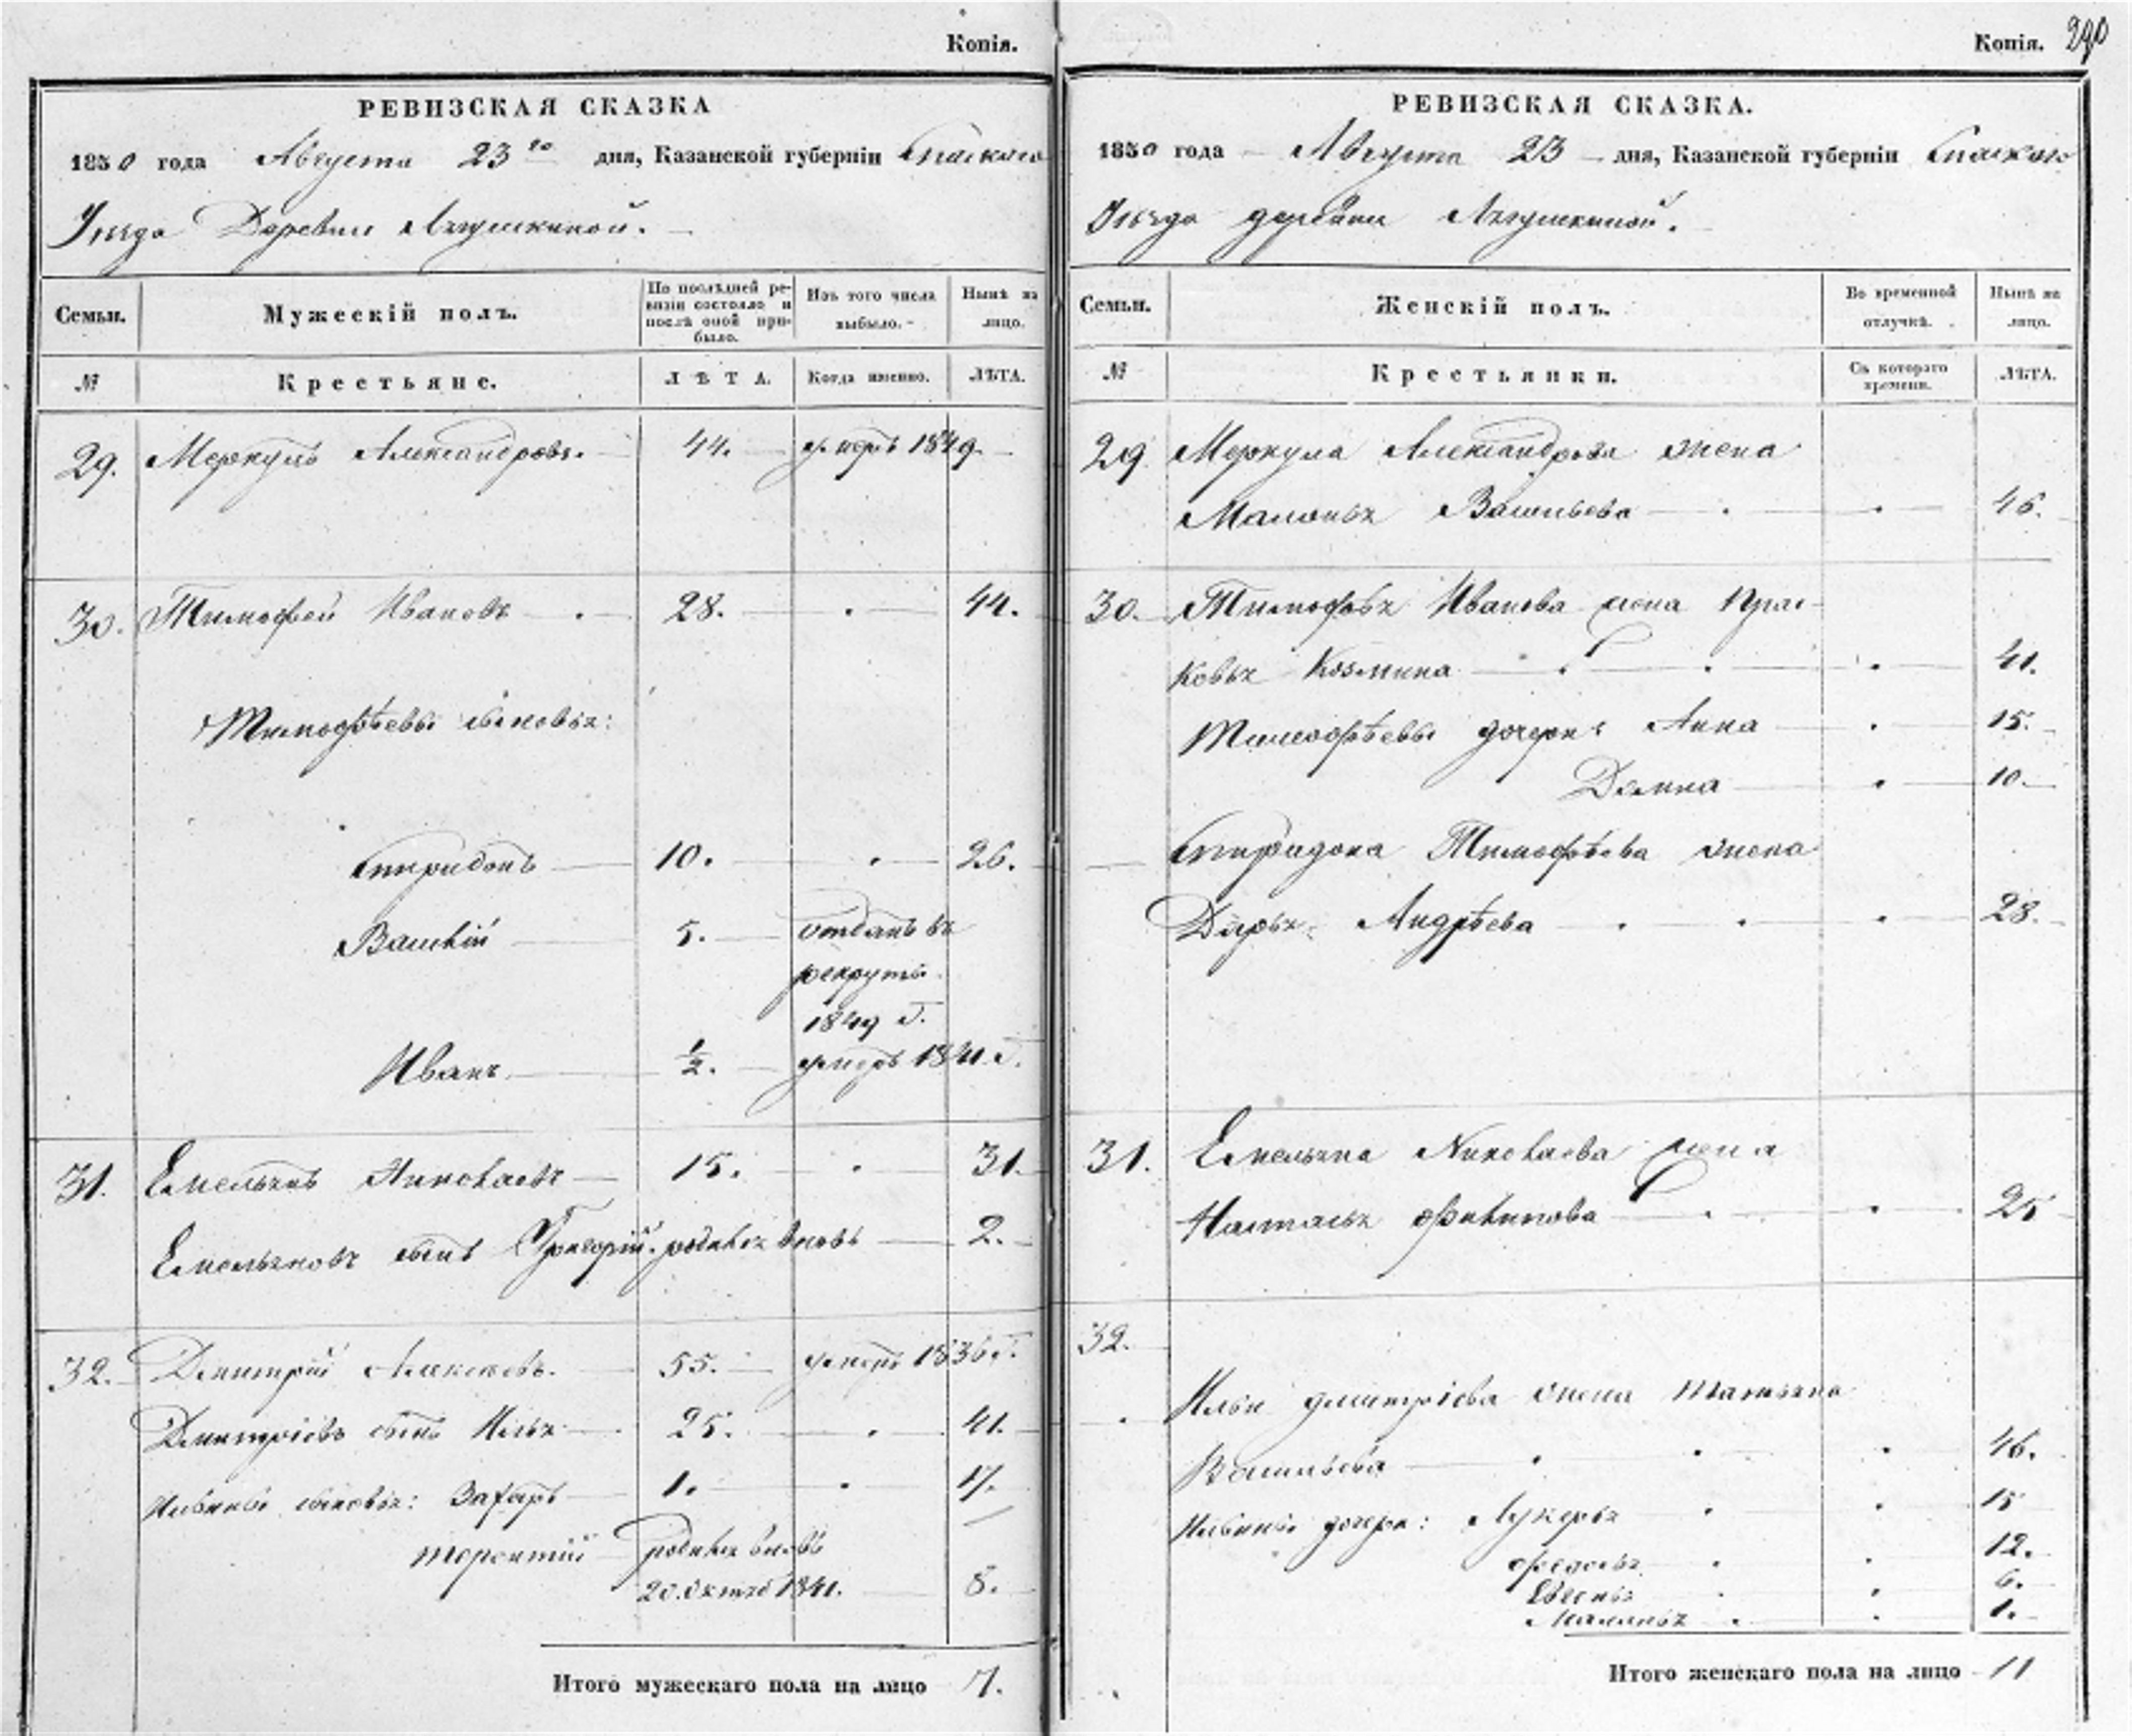 Копія.
РЕВИЗСКАЯ СКАЗКА
1850 года Августа 23го дня, Казанской губерніи Спаскаго
Уѣзда Деревни
Семьи. Мужескій полъ. По послѣдней ревизіи состояло и послѣ оной прибыло. Изъ того числа выбыло. Нынѣ на лицо.
№ Крестьяне. ЛѢТА. Когда именно. ЛѢТА.
29. Меркулъ Александровъ. 44. умеръ 1849.
30. Тимофей Ивановъ 28. 44.
Тимофѣевы сыновья:
Спиридонъ 10. 26.
Василій 5. отданъ въ
рекруты
1849 г.
Иванъ 1/2. умеръ 1841. г.
31. Емельянъ Николаевъ 15. 31.
Емельяновъ сынъ Григорій. родился вновь 2.
32. Дмитрій Алексѣевъ. 55. умеръ 1836 г.
Дмитріевъ сынъ Илья 25. 41.
Ильины сыновья: Захаръ 1. 17.
Терентій родился вновь
20. Октяб 1841. 8.
Итого мужескаго пола на лицо 7.
Копія. 290
РЕВИЗСКАЯ СКАЗКА.
1850 года Августа 23 дня, Казанской губерніи Спаскаго
Уѣзда деревни
Семьи. Женскій полъ. Во временной отлучкѣ. Нынѣ на лицо.
№ Крестьянки. Съ котораго времени. ЛѢТА.
29 Меркула Александрова жена
Маланья Васильева 46.
30. Тимофѣя Иванова жена Прас-
ковья Козмина 41.
Тимофѣевы дочери: Анна 15.
Домна 10.
Спиридона Тимофѣева жена
Дарья Андрѣева 28.
31. Емельяна Николаева жена
Наталья Филипова 25
32.
Ильи Дмитріева жена Татьяна
Васильева 46.
Ильины дочери: Лукерья 15
Федосья 12.
Евгенья 6.
Маланья 1.
Итого женскаго пола на лицо 11